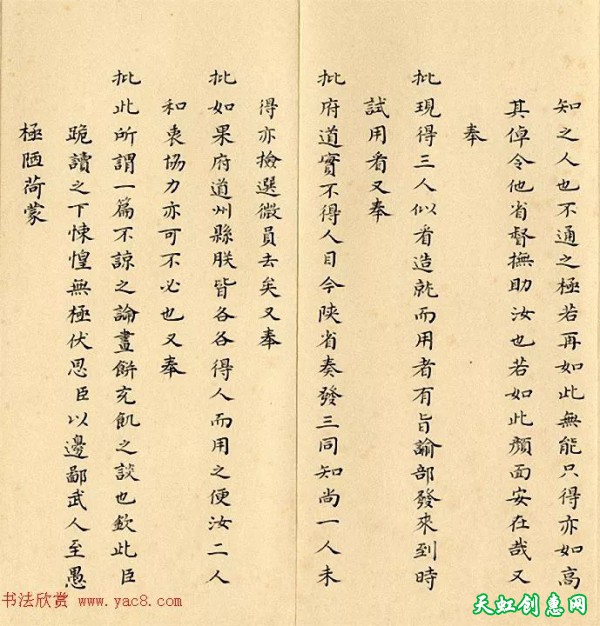 知之人也不通之極若再如此無能只得亦如高
其倬令他省督撫助汝也若如此顏面安在哉又
奉
批現得三人似看造就而用者有旨諭部發來到時
試用看又奉
批府道實不得人目今陝省奏發三同知尚一人未
得亦撿選微員去矣又奉
批如果府道州縣朕皆各各得人而用之便汝二人
和衷協力亦可不必也又奉
批此所謂一篇不諒之論畫餅充飢之談也欽此臣
跪讀之下悚惶無極伏思臣以邊鄙武人至愚
極陋荷蒙
书法欣赏 www.yac8.com
天虹创惠网